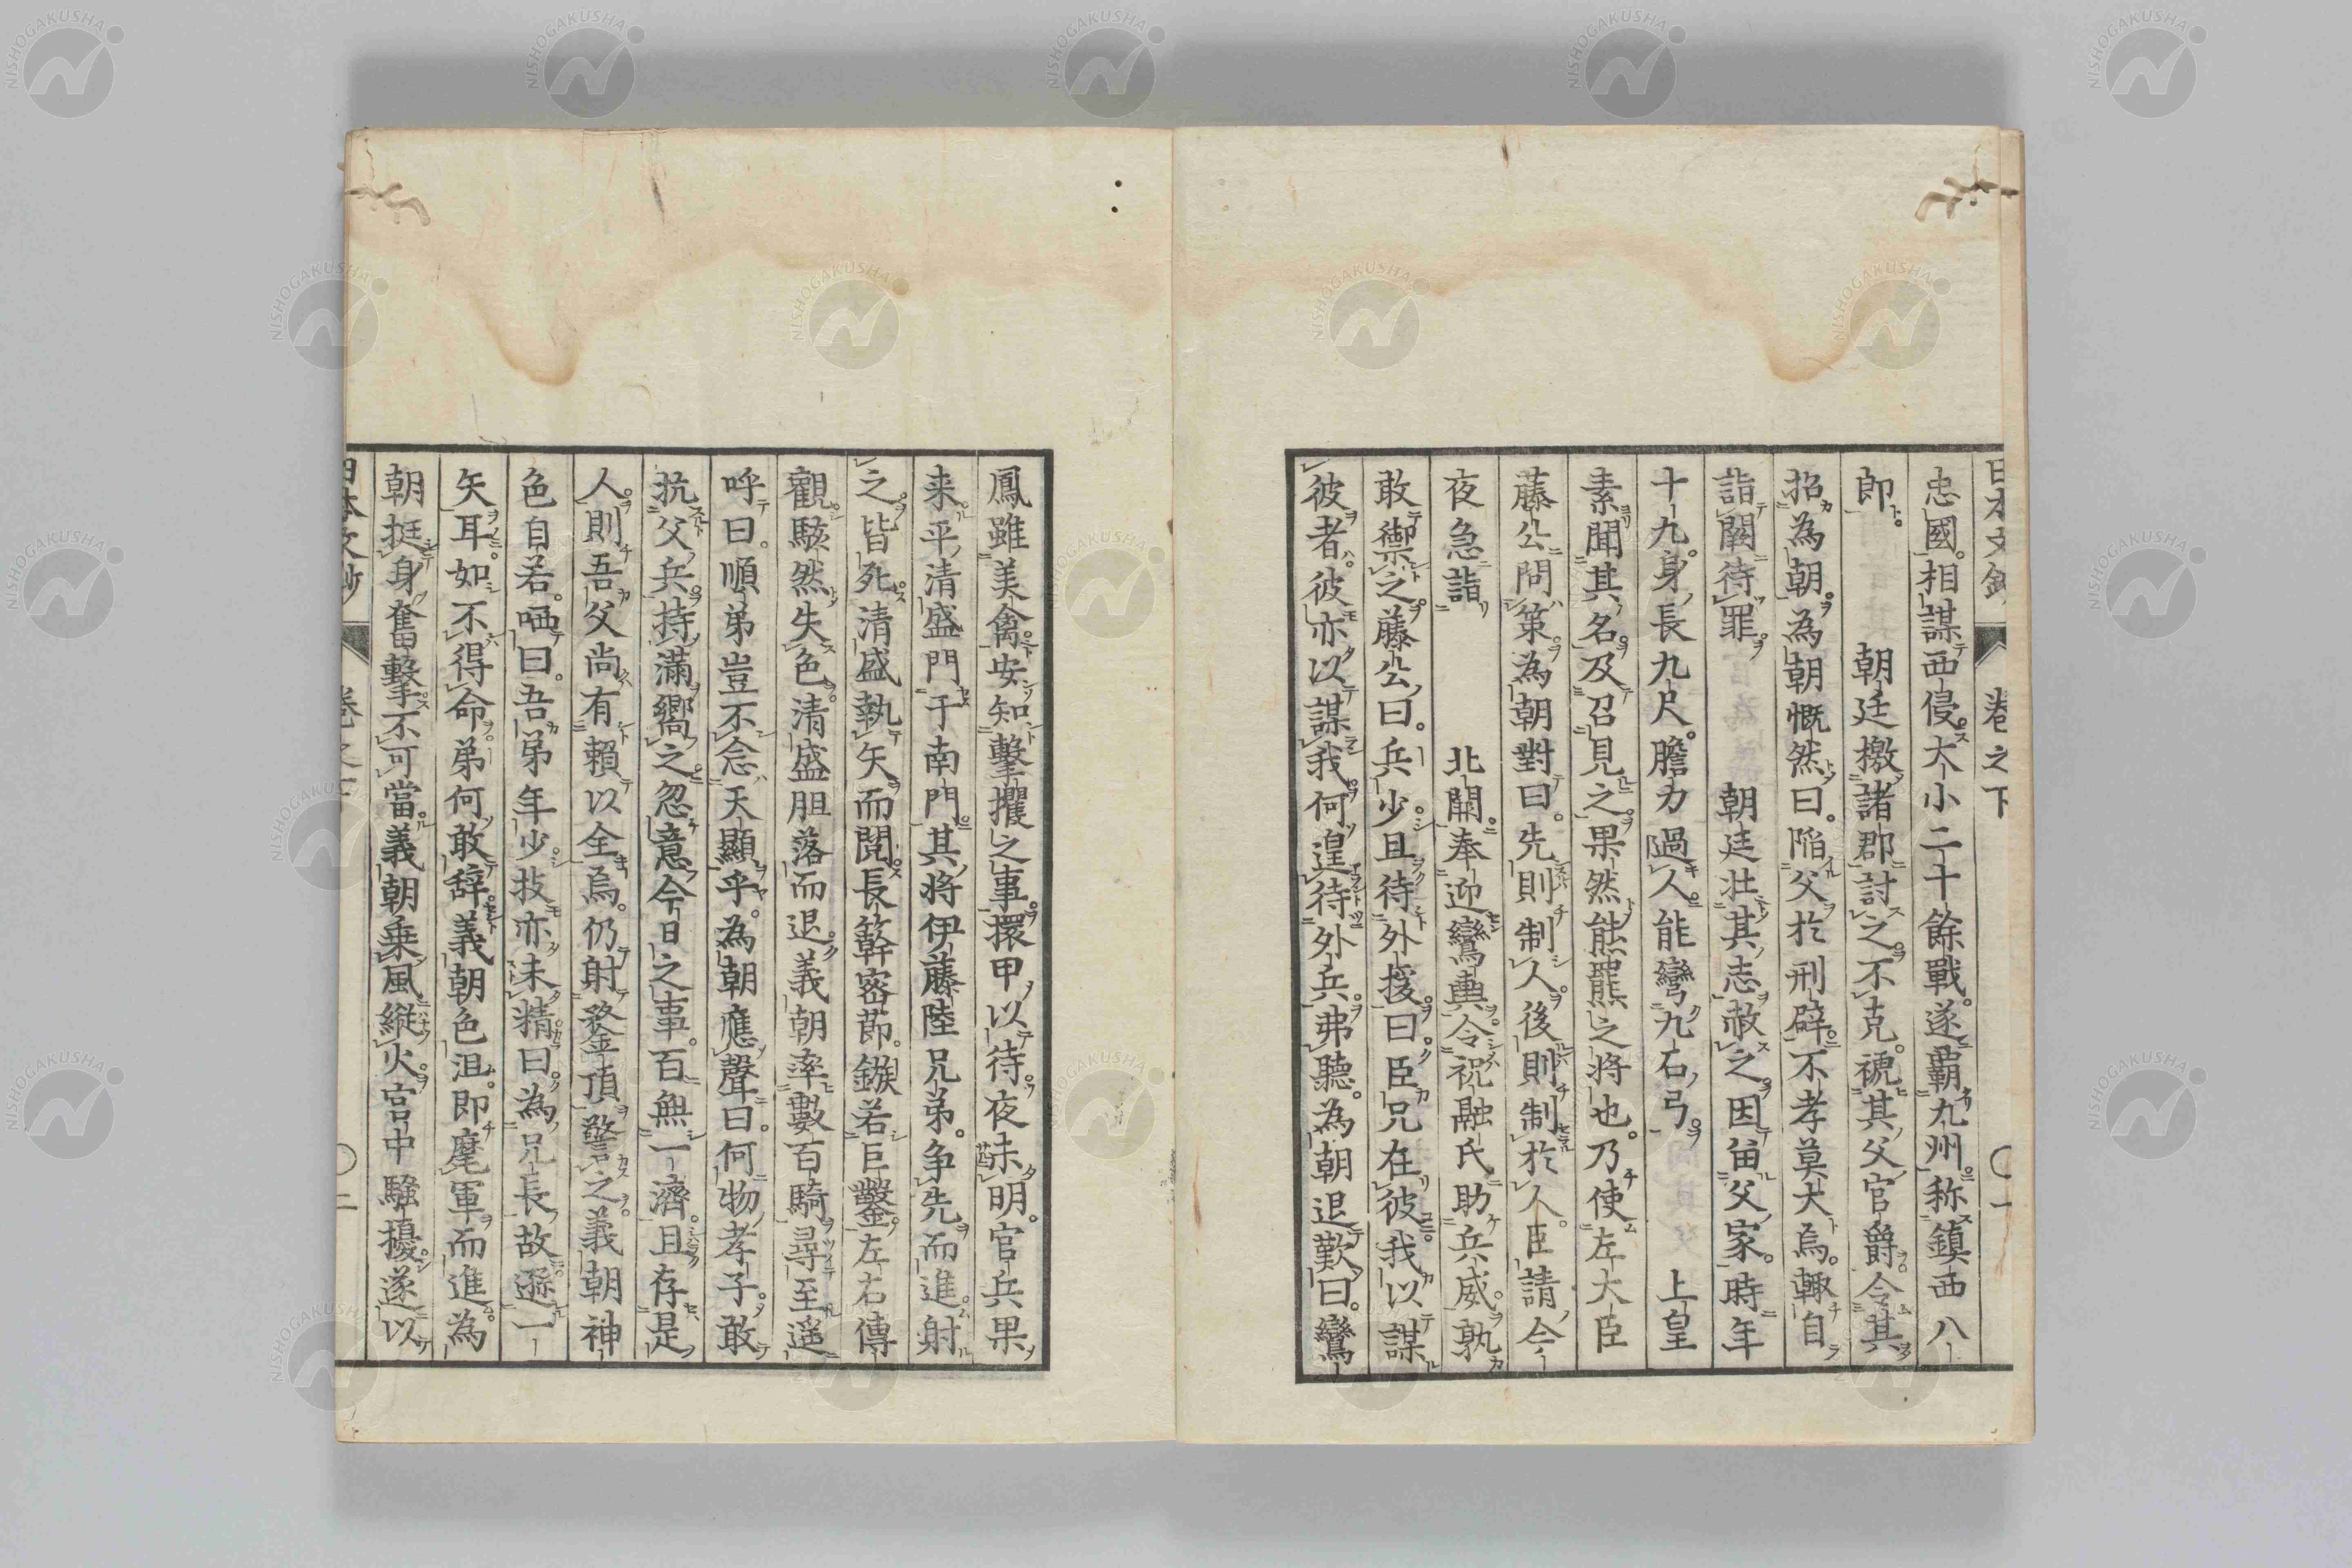 日本文鈔 卷之下 〇一
忠國。相謀西侵。大小二十餘戰。遂覇九州。称鎮西八
郎。朝廷檄諸郡討之。不克。褫其父官爵。令其
招為朝。為朝慨然曰。陷父於刑辟。不孝莫大焉。輙自
詣闕待罪。朝廷壮其志。赦之。因留父家。時年
十九。身長九尺。膽力過人。能彎九石弓。上皇
素聞其名。及召見之。果然熊羆之將也。乃使左大臣
藤公問策。為朝對曰。先則制人。後則制於人。臣請今
夜急詣北闕。奉迎鸞輿。令祝融氏助兵威。孰
敢禦之。藤公曰。兵少。且待外援。曰。臣兄在彼。我以謀
彼者。彼亦以謀我。何遑待外兵。弗聽。為朝退歎曰。鸞
鳳雖美禽。安知擊攫之事。擐甲以待。夜未明。官兵果
来。平清盛門于南門。其将伊藤陸兄弟。争先而進。射
之。皆死。清盛執矢而閲。長簳密節。鏃若巨鑿。左右傳
觀。駭然失色。清盛胆落而退。義朝率數百騎尋至。遥
呼曰。順弟豈不念天顯乎。為朝應聲曰。何物孝子。敢
抗父兵。持滿嚮之。忽意今日之事。百無一濟。且存是
人。則吾父尚有賴以全焉。仍射鍪頂。警之。義朝神
色自若。哂曰。吾弟年少。技亦未精。曰。為兄長故遜一
矢耳。如不得命。弟何敢辞。義朝色沮。即麾軍而進。為
朝挺身奮擊。不可當。義朝乗風縦火。宮中騒擾。遂以
日本文鈔 卷之下 〇二
NISHOGAKUSHA